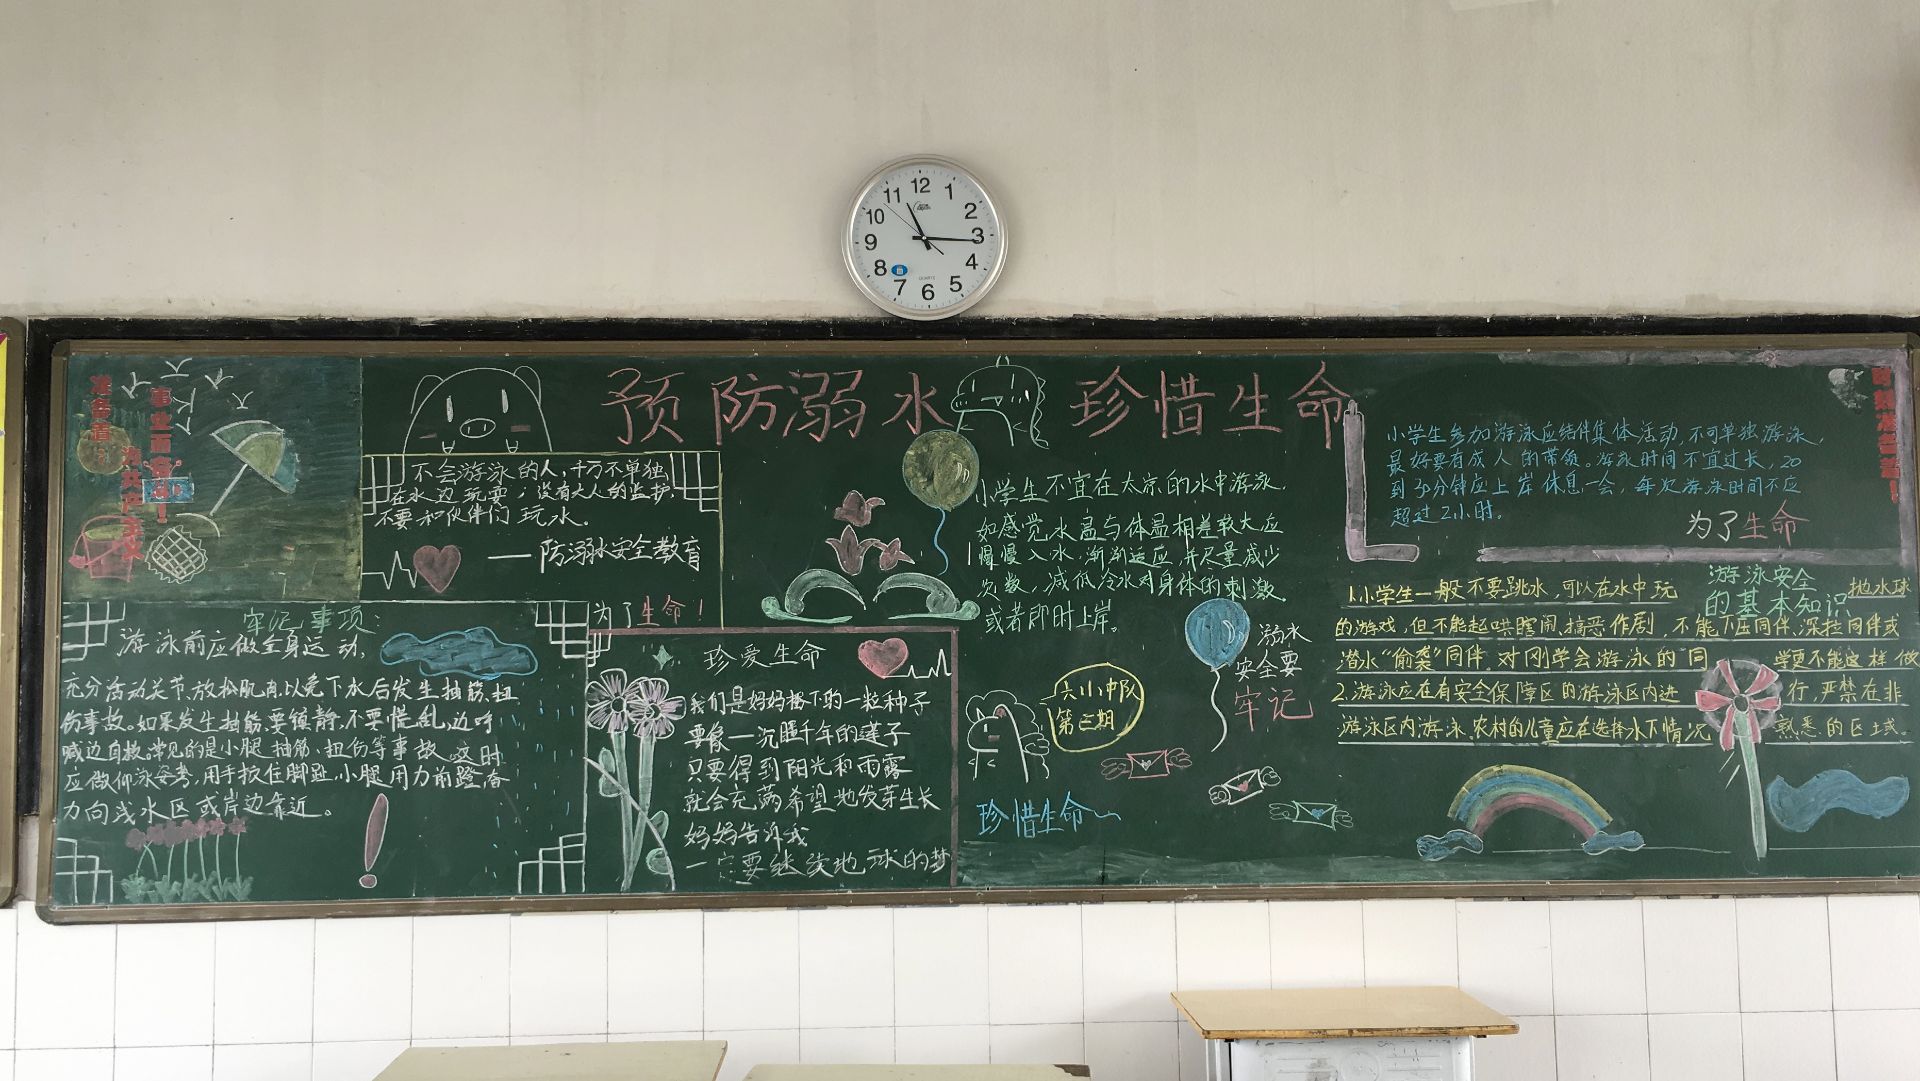 12
1
2
3
4
5
6
7
8
9
10
11
QUARTZ
预防溺水 珍惜生命
准备着：
为共产主义
事业而奋斗！
不会游泳的人，千万不单独
在水边玩耍；没有大人的监护，
不要和伙伴们玩水。
——防溺水安全教育
为了生命！
牢记事项：
游泳前应做全身运动，
充分活动关节，放松肌肉，以免下水后发生抽筋、扭
伤事故。如果发生抽筋，要镇静，不要慌乱，边呼
喊边自救。常见的是小腿抽筋、扭伤等事故。这时
应做仰泳姿势，用手扳住脚趾，小腿用力前蹬，奋
力向浅水区或岸边靠近。
珍爱生命
我们是妈妈播下的一粒种子
要像一沉睡千年的莲子
只要得到阳光和雨露
就会充满希望地发芽生长
妈妈告诉我
一定要继续地球的梦
小学生不宜在太凉的水中游泳，
如感觉水温与体温相差较大，应
慢慢入水，渐渐适应，并尽量减少
次数，减低冷水对身体的刺激。
或者即时上岸。
溺水
安全要
牢记
六小中队
第三期
珍惜生命
小学生参加游泳应结伴集体活动，不可单独游泳，
最好要有成人的带领。游泳时间不宜过长，20
到30分钟应上岸休息一会，每次游泳时间不应
超过2小时。
为了生命
时刻准备着！
游泳安全
的基本知识
1.小学生一般不要跳水，可以在水中玩抛水球
的游戏，但不能起哄瞎闹，搞恶作剧，不能下压同伴、深拉同伴或
潜水“偷袭”同伴。对刚学会游泳的同学更不能这样做
2.游泳应在有安全保障区的游泳区内进行，严禁在非
游泳区内游泳。农村的儿童应在选择水下情况熟悉的区域。